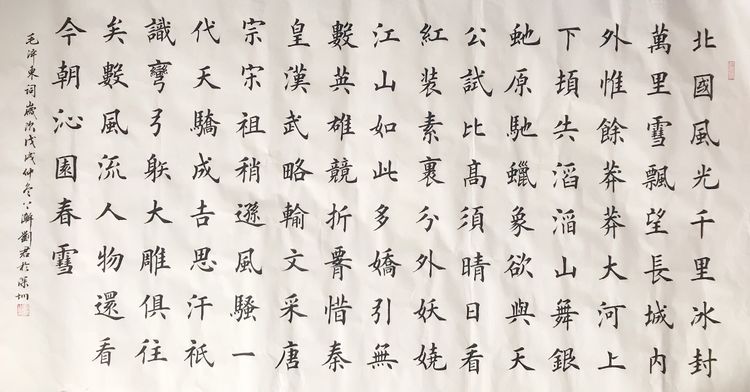 北國風光千里冰封
萬里雪飄望長城内
外惟餘莽莽大河上
下頓失滔滔山舞銀
虵原馳蠟象欲與天
公試比髙須晴日看
紅装素裹分外妖嬈
江山如此多嬌引無
數英雄競折腰惜秦
皇漢武略輸文采唐
宗宋祖稍遜風騷一
代天驕成吉思汗祇
識彎弓躲大雕俱往
矣數風流人物還看
今朝沁園春雪
毛澤東詞歲次戊戌仲冬劉君於深圳